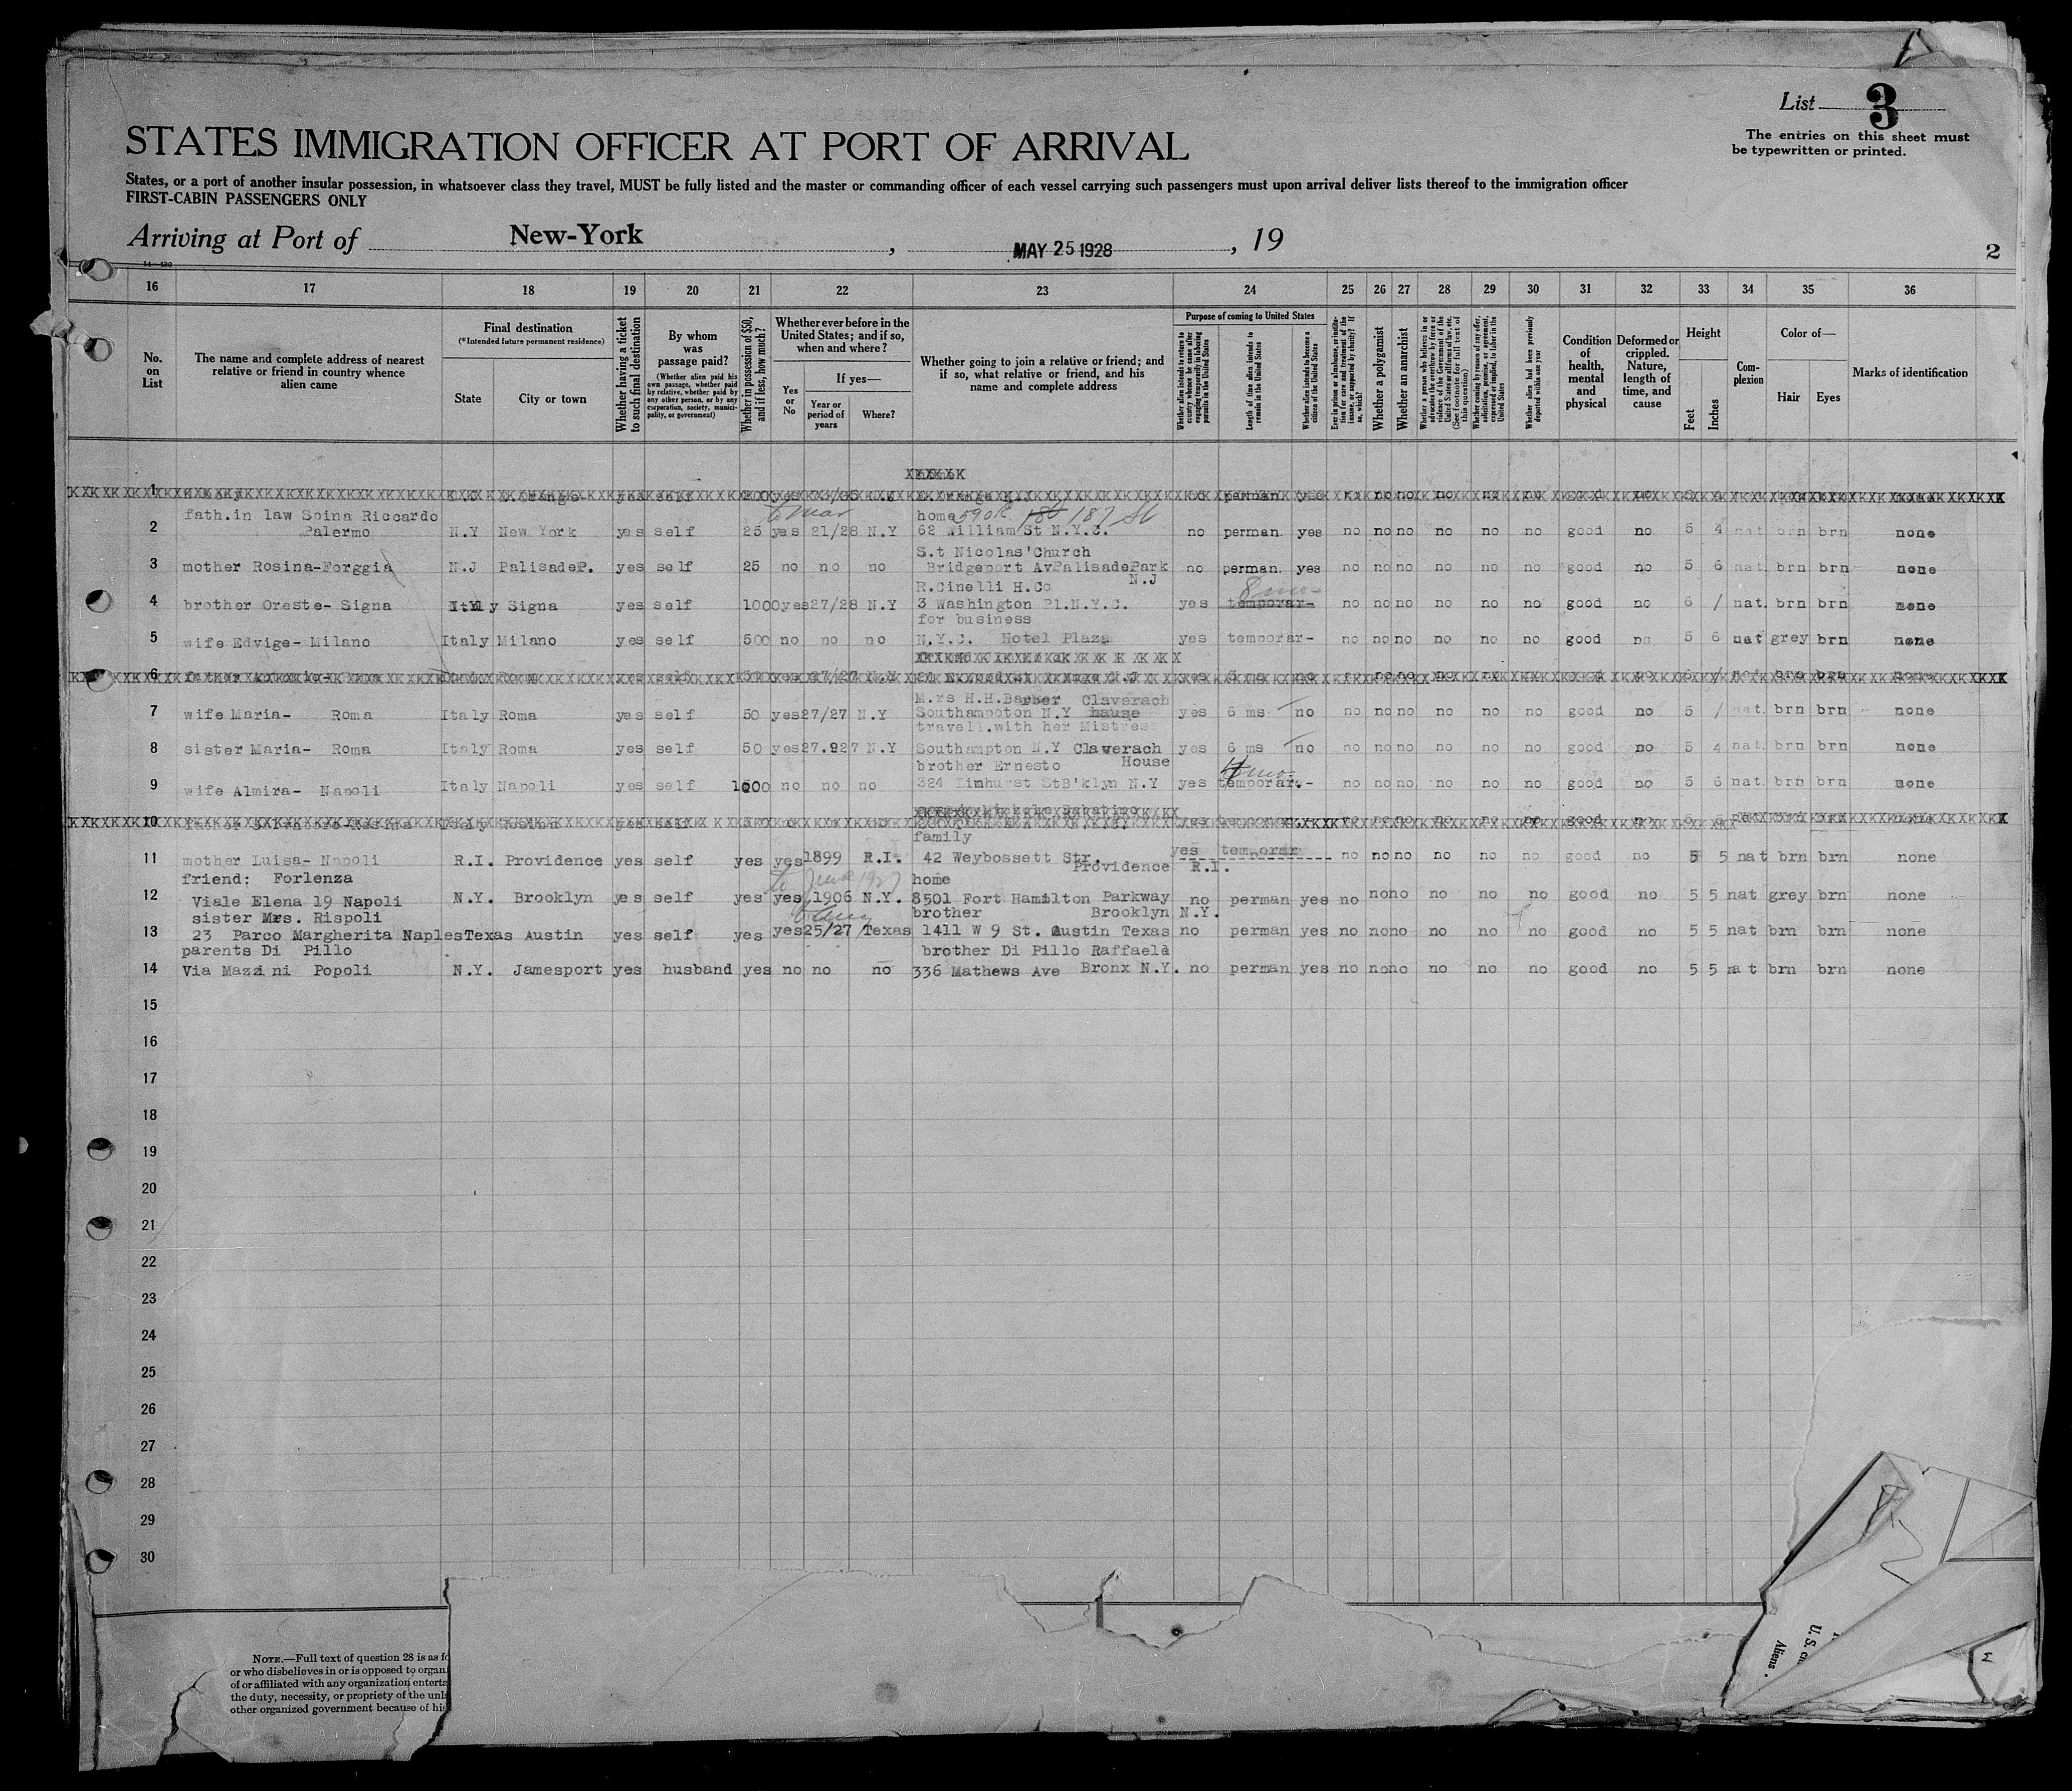 List 3
The entries on this sheet must
be typewritten or printed.
STATES IMMIGRATION OFFICER AT PORT OF ARRIVAL
States, or a port of another insular possession, in whatsoever class they travel, MUST be fully listed and the master or commanding officer of each vessel carrying such passengers must upon arrival deliver lists thereof to the immigration officer
FIRST-CABIN PASSENGERS ONLY
Arriving at Port of New-York, MAY 25 1928, 19
2
14-480
16 17 18 19 20 21 22 23 24 25 26 27 28 29 30 31 32 33 34 35 36
No. on List
The name and complete address of nearest relative or friend in country whence alien came
Final destination
(*Intended future permanent residence)
State
City or town
Whether having a ticket to such final destination
By whom was passage paid?
(Whether alien paid his own passage, whether paid by relative, whether paid by any other person, or by any corporation, society, municipality, or government)
Whether in possession of $50, and if less, how much?
Whether ever before in the United States; and if so, when and where?
Yes or No
If yes—
Year or period of years
Where?
Whether going to join a relative or friend; and if so, what relative or friend, and his name and complete address
Purpose of coming to United States
Whether alien intends to return to country whence he came after engaging temporarily in laboring pursuits in the United States
Length of time alien intends to remain in the United States
Whether alien intends to become a citizen of the United States
Ever in prison or almshouse, or institution for care and treatment of the insane, or supported by charity? If so, which?
Whether a polygamist
Whether an anarchist
Whether a person who believes in or advocates the overthrow by force or violence of the Government of the United States or all forms of law, etc. (See footnote for full text of this question)
Whether coming by reason of any offer, solicitation, promise, or agreement, expressed or implied, to labor in the United States
Whether alien had been previously deported within one year
Condition of health, mental and physical
Deformed or crippled. Nature, length of time, and cause
Height
Feet
Inches
Complexion
Color of—
Hair
Eyes
Marks of identification
1 self yes perman yes no no no no no no good no
fath.in law Spina Riccardo home 590 E 187 St
2 Palermo N.Y New York yes self 25 yes 21/28 N.Y 62 William St N.Y.C. no perman. yes no no no no no no good no 5 4 nat brn brn none
S.t Nicolas'Church
3 mother Rosina-Forggia N.J PalisadeP. yes self 25 no no no Bridgeport AvPalisadePark N.J no perman. yes no no no no no no good no 5 6 nat. brn brn none
R.Cinelli H.Co 8 mo-
4 brother Oreste- Signa Italy Signa yes self 1000 yes 27/28 N.Y 3 Washington Pl.N.Y.C. yes temporar- no no no no no no good no 6 / nat. brn brn none
for business
5 wife Edvige- Milano Italy Milano yes self 500 no no no N.Y.C. Hotel Plaza yes temporar- no no no no no no good no 5 6 nat grey brn none
6
M.rs H.H.Barber Claverach
7 wife Maria- Roma Italy Roma yes self 50 yes 27/27 N.Y Southampoton N.Y hause yes 6 ms no no no no no no no good no 5 / nat. brn brn none
travell.with her Mistres
8 sister Maria- Roma Italy Roma yes self 50 yes 27.927 N.Y Southampton N.Y Claverach House yes 6 ms no no no no no no no good no 5 4 nat. brn brn none
brother Ernesto 4 mo.
9 wife Almira- Napoli Italy Napoli yes self 1500 no no no 324 Limhurst StB'klyn N.Y yes temporar.- no no no no no no good no 5 6 nat brn brn none
10 good no
family
11 mother Luisa- Napoli R.I. Providence yes self yes yes 1899 R.I. 42 Weybossett Str. Providence R.I. yes temporar no no no no no no good no 5 5 nat brn brn none
friend: Forlenza to June 1927 home
12 Viale Elena 19 Napoli N.Y. Brooklyn yes self yes yes 1906 N.Y. 8501 Fort Hamilton Parkway Brooklyn N.Y. no perman yes no no no no no no good no 5 5 nat grey brn none
sister Mrs. Rispoli brother
13 23 Parco Margherita Naples Texas Austin yes self yes yes 25/27 Texas 1411 W 9 St. Austin Texas no perman yes no no no no no no good no 5 5 nat brn brn none
parents Di Pillo brother Di Pillo Raffaele
14 Via Mazzini Popoli N.Y. Jamesport yes husband yes no no no 336 Mathews Ave Bronx N.Y. no perman yes no no no no no no good no 5 5 nat brn brn none
15
16
17
18
19
20
21
22
23
24
25
26
27
28
29
30
NOTE.—Full text of question 28 is as fo
or who disbelieves in or is opposed to organ
of or affiliated with any organization enterta
the duty, necessity, or propriety of the unla
other organized government because of his
U. S. c
Aliens